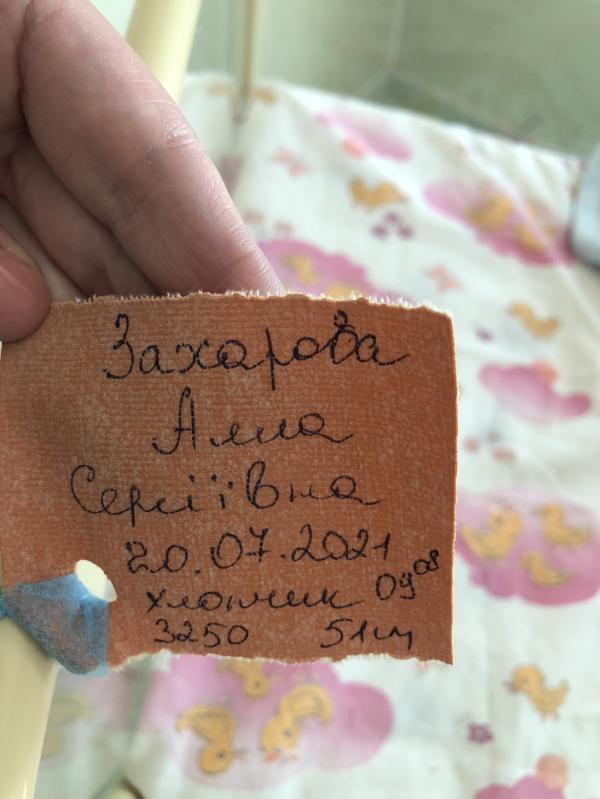 Захарова
Алла
Сергіївна
20.07.2021
хлопчик 09⁰⁸
3250 51см